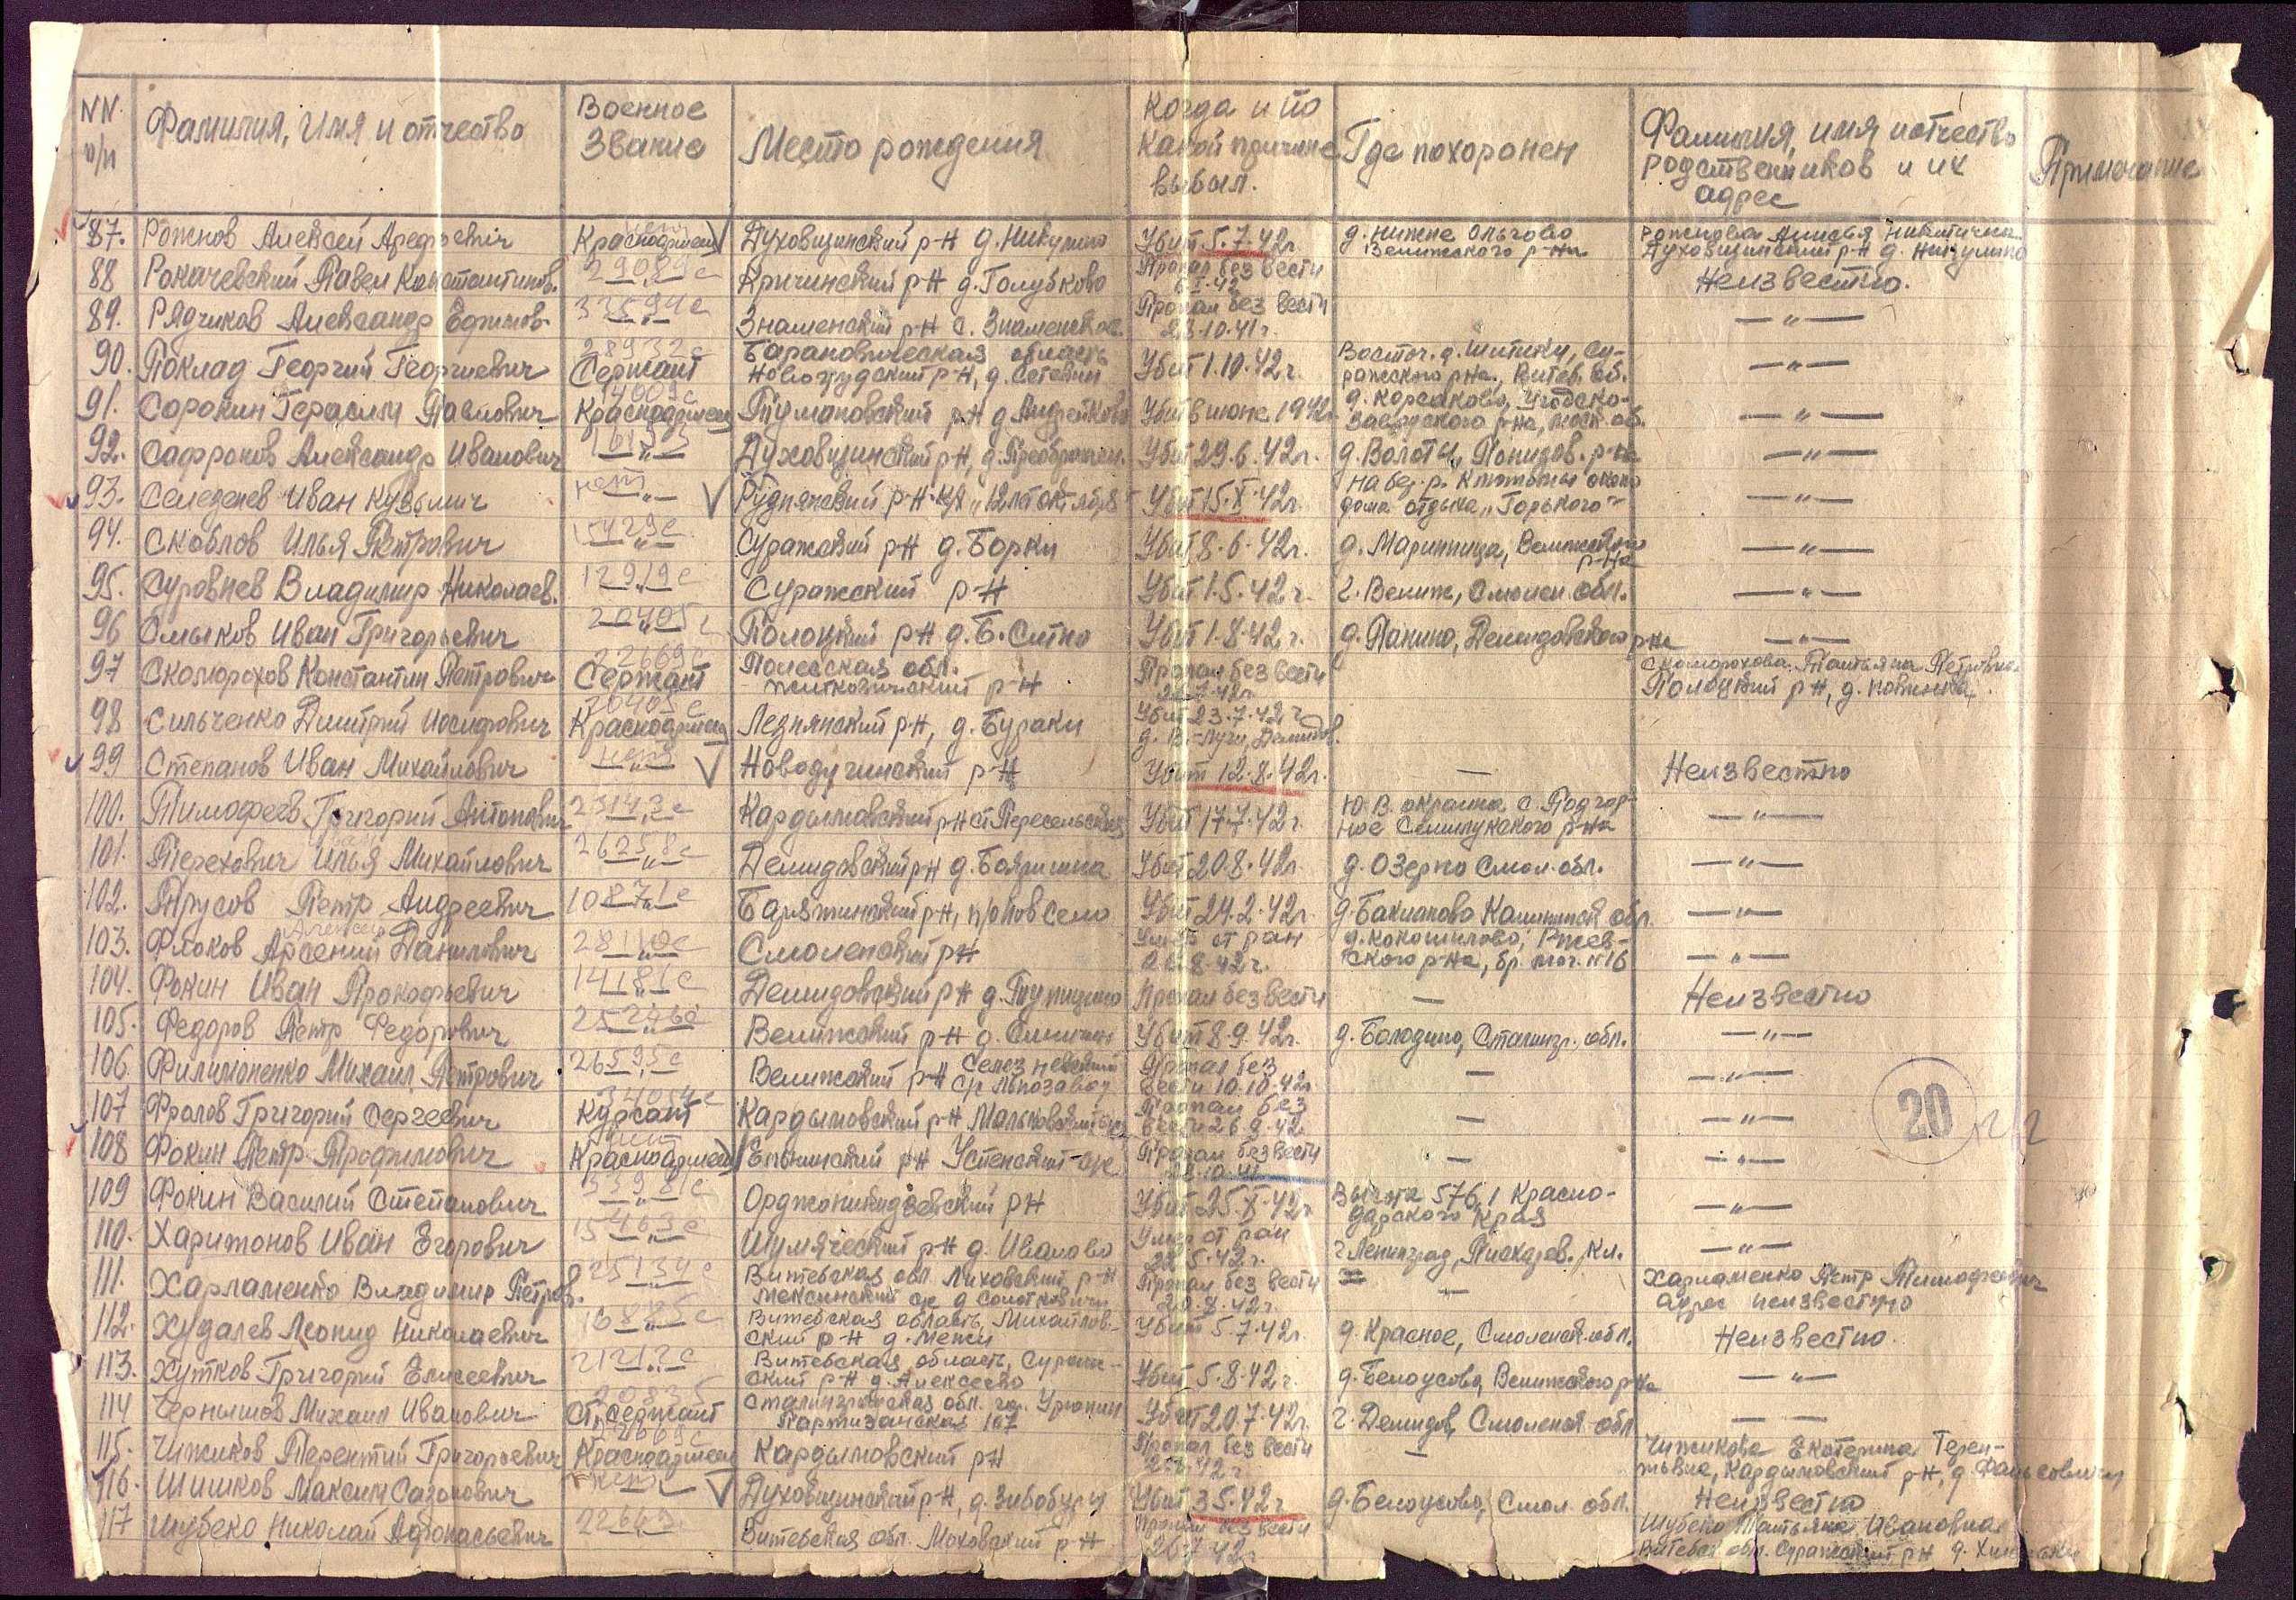 NN п/п
Фамилия, имя и отчество
Военное звание
Место рождения
Когда и по какой причине выбыл.
Где похоронен
Фамилия, имя и отчество родственников и их адрес
Примечание
87. Рожнов Алексей Арефьевич Красноармеец Духовщинский р-н д. Никулино Убит 5.7.42г. д. Нижне Ольгово Велижского р-на Рожнова Анисья Никитична Духовщинский р-н д. Никулино
88 Рокачевский Павел Константинов. 29089с —„— Кричинский р-н д. Голубково Пропал без вести 42 Неизвестно.
89. Рядчиков Александр Ефимов. —„— Знаменский р-н с. Знаменское Пропал без вести 23.10.41г. —„—
90. Поклад Георгий Георгиевич 28932с Сержант Барановическая область Новогрудский р-н, д. Убит 1.10.42г. Восточ. д. Шипики, Су-
ражского р-на, Витеб. об. —„—
91. Сорокин Герасим Павлович Красноармеец Тумановский р-н д. Андрейково Убит в июне 1942г. д. Корсаково, Угодско-
Заводского р-на, Моск. об. —„—
92. Сафронов Александр Иванович —„— Духовщинский р-н, д. Преображен. Убит 29.6.42г. д. Волоты, Понизов. р-на —„—
93. Селезнев Иван Кузьмич нет —„— Руднянский р-н Убит 15.X.42г. на бер. р. около дома отдыха „Горького“ —„—
94. Скоблов Илья Петрович 15429с —„— Суражский р-н д. Борки Убит 8.6.42г. д. Велижского р-на —„—
95. Суровнев Владимир Николаев. 12919с —„— Суражский р-н Убит 1.5.42г. г. Велиж, Смолен. обл. —„—
96 Смыков Иван Григорьевич 20405с —„— Полоцкий р-н д. Б. Ситно Убит 1.8.42г. д. Панино, Демидовского р-на —„—
97 Скоморохов Константин Петрович 22669с Сержант Полесская обл. Житковический р-н Пропал без вести 26.7.42г. Скоморохова Татьяна Петровна
Полоцкий р-н, д.
98 Сильченко Дмитрий Иосифович 20405с Красноармеец Лезнянский р-н, д. Бураки Убит 23.7.42г. д. В-Луги, Демидов.
99 Степанов Иван Михайлович нет —„— Новодугинский р-н Убит 12.8.42г. — Неизвестно
100. Тимофеев Григорий Антонович 23143с —„— Кардымовский р-н ст. Пересельская Убит 17.7.42г. Ю.В. окраина с. Подгор-
ное Семилукского р-на —„—
101. Терехович Илья Михайлович 26258с —„— Демидовский р-н д. Бояршина Убит 20.8.42г. д. Озерко Смол. обл. —„—
102. Трусов Петр Андреевич 10871с —„— Барятинский р-н, п/о Нов Село Убит 24.2.42г. д. Бакланово Калининск. обл. —„—
103. Флоков Арсений Данилович 28110с —„— Смоленский р-н Умер от ран 8.42г. д. Кокошилово, Ржев-
ского р-на, бр. мог. №16 —„—
104. Фокин Иван Прокофьевич 14181с —„— Демидовский р-н д. Пропал без вести — Неизвестно
105. Федоров Петр Федорович 25246с —„— Велижский р-н д. Убит 8.9.42г. д. Сталингр. обл. —„—
106. Филимоненко Михаил Петрович 26595с —„— Велижский р-н Селезневский с/с Льнозавод Пропал без вести 10.10.42г. — —„—
107 Фролов Григорий Сергеевич 34054с Курсант Кардымовский р-н Мальковский с/с Пропал без вести 26.9.42 — —„—
108 Фокин Петр Трофимович нет Красноармеец Ельнинский р-н Успенский с/с Пропал без вести 23.10.41 — —„—
109 Фокин Василий Степанович —„— Орджоникидзевский р-н Убит 25.X.42г. Высота 576,1 Красно-
дарского края —„—
110. Харитонов Иван Егорович 15463с —„— Шумяческий р-н д. Иваново Умер от ран 22.5.42г. г. Ленинград, Пискарев. кл. —„—
111. Харламенко Владимир Петров. 25134с —„— Витебская обл. Пропал без вести 20.8.42г. — Харламенко Петр Тимофеевич
адрес неизвестно
112. Худалев Леонид Николаевич 16825с —„— Витебская область, Михайлов-
ский р-н д. Межи Убит 5.7.42г. д. Красное, Смоленск. обл. Неизвестно.
113. Хутков Григорий Елисеевич 21212с —„— Витебская область, Сураж-
ский р-н д. Алексеево Убит 5.8.42г. д. Белоусово, Велижского р-на —„—
114 Чернышов Михаил Иванович 20835 Ст. сержант Сталинградская обл. гор. Урюпин
Партизанская 107 Убит 20.7.42г. г. Демидов, Смоленск. обл — —
115. Чижиков Терентий Григорьевич 22669с Красноармеец Кардымовский р-н Пропал без вести — Чижикова Екатерина Терен-
тьевна, Кардымовский р-н, д.
116. Шишков Максим Сазонович нет —„— Духовщинский р-н, д. Убит 3.5.42г. д. Белоусово, Смол. обл. Неизвестно
117 Шубеко Николай Афонасьевич 22669 Витебская обл. Меховский р-н Пропал без вести 26.7.42г. Шубеко Татьяна Ивановна
Витебск. обл. Суражский р-н д.
20